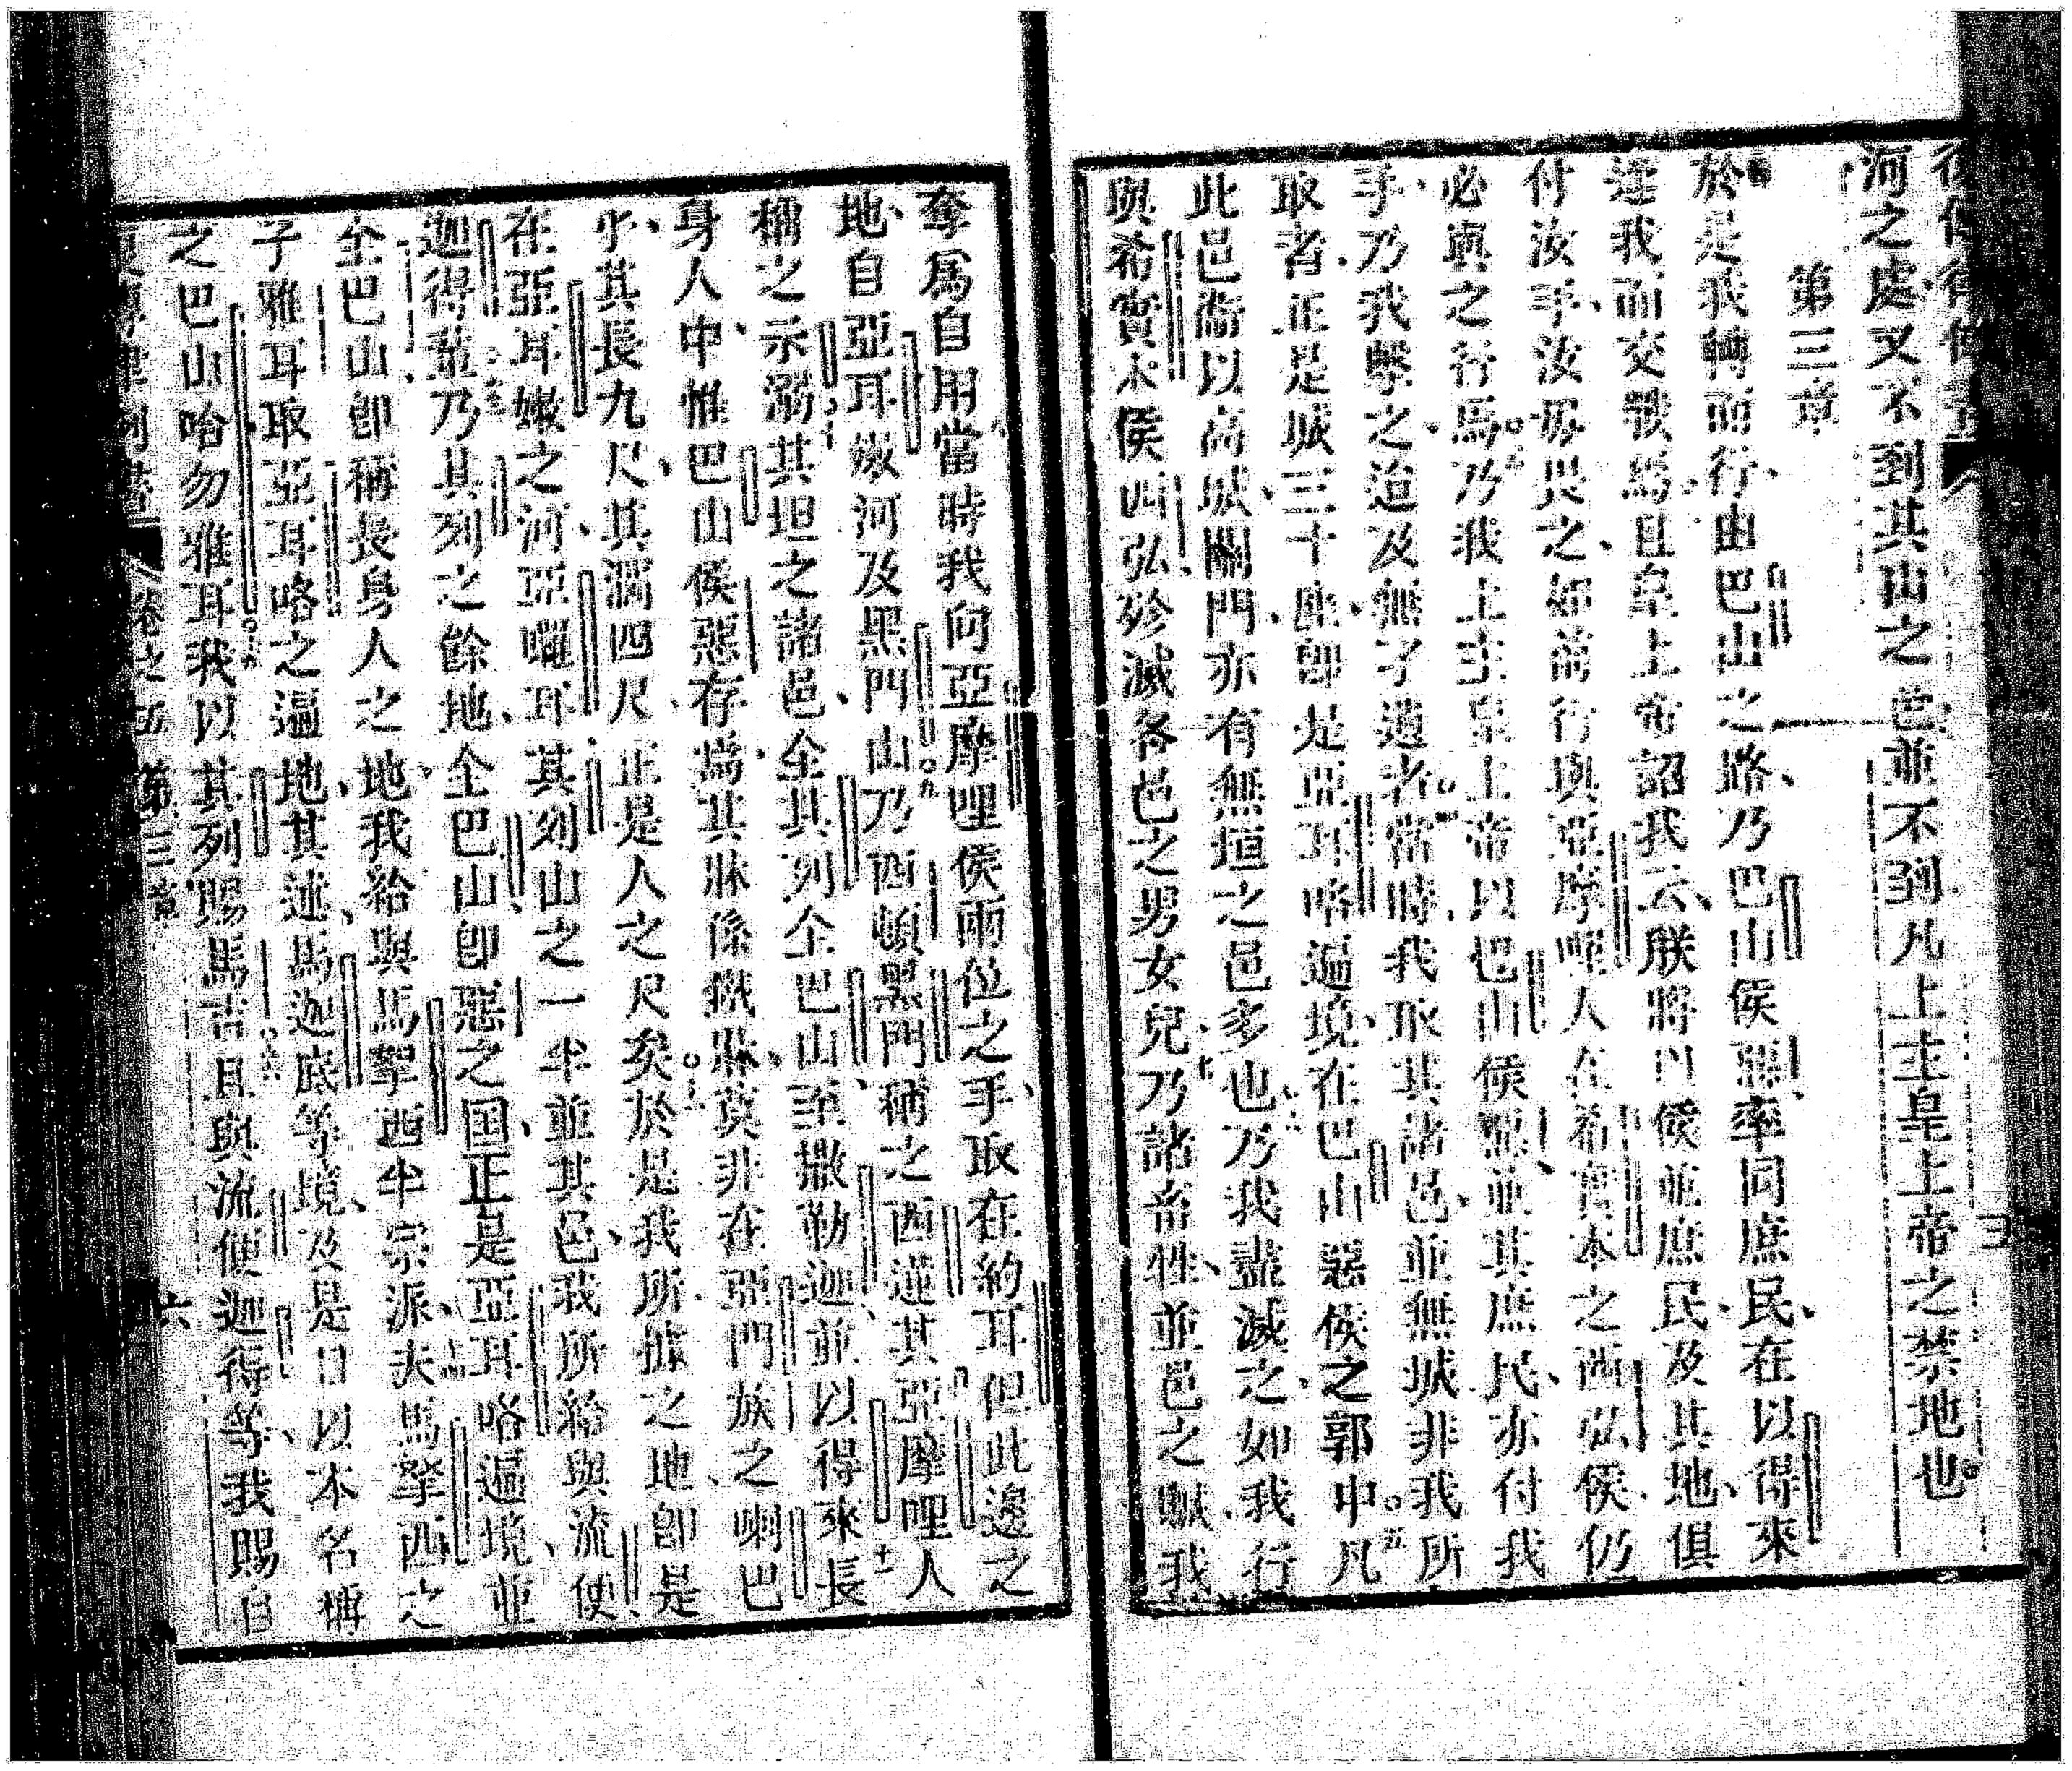 河之處又不到其山之邑並不到凡上主皇上帝之禁地也
第三章
於是我轉而行由巴山之路乃巴山侯惡率同庶民在以得來
逢我而交戰焉且皇上帝詔我云朕將以侯並庶民及其地俱
付汝手汝毋畏之如前行與亞摩哩人在希實本之西弘侯仍
必與之行焉乃我上主皇上帝以巴山侯惡並其庶民亦付我
手乃我擊之迨及無孑遺者當時我取其諸邑並無城非我所
取者正是城三十座即是亞耳咯遍境在巴山惡侯之郭中凡
此邑齊以高城關門亦有無垣之邑多也乃我盡滅之如我行
與希實本侯西弘殄滅各邑之男女兒乃諸畜牲並邑之贓我
奪為自用當時我向亞摩哩侯兩位之手取在約耳但此邊之
地自亞耳嫩河及黑門山乃西頓黑門稱之西連其亞摩哩人
稱之示溺其坦之諸邑全其列全巴山至撒勒迦並以得來長
身人中惟巴山侯惡存焉其牀係鐵牀莫非在亞門族之喇巴
乎其長九尺其濶四尺正是人之尺矣於是我所據之地即是
在亞耳嫩之河亞囉耳其列山之一半並其邑我所給與流便
迦得輩乃其列之餘地全巴山即惡之国正是亞耳咯遍境並
全巴山即稱長身人之地我給與馬拏西半宗派夫馬拏西之
子雅耳取亞耳咯之遍地其連馬迦底等境及是日以本名稱
之巴山哈勿雅耳我以其列賜馬吉且與流便迦得等我賜自
卷之五 第三章 六